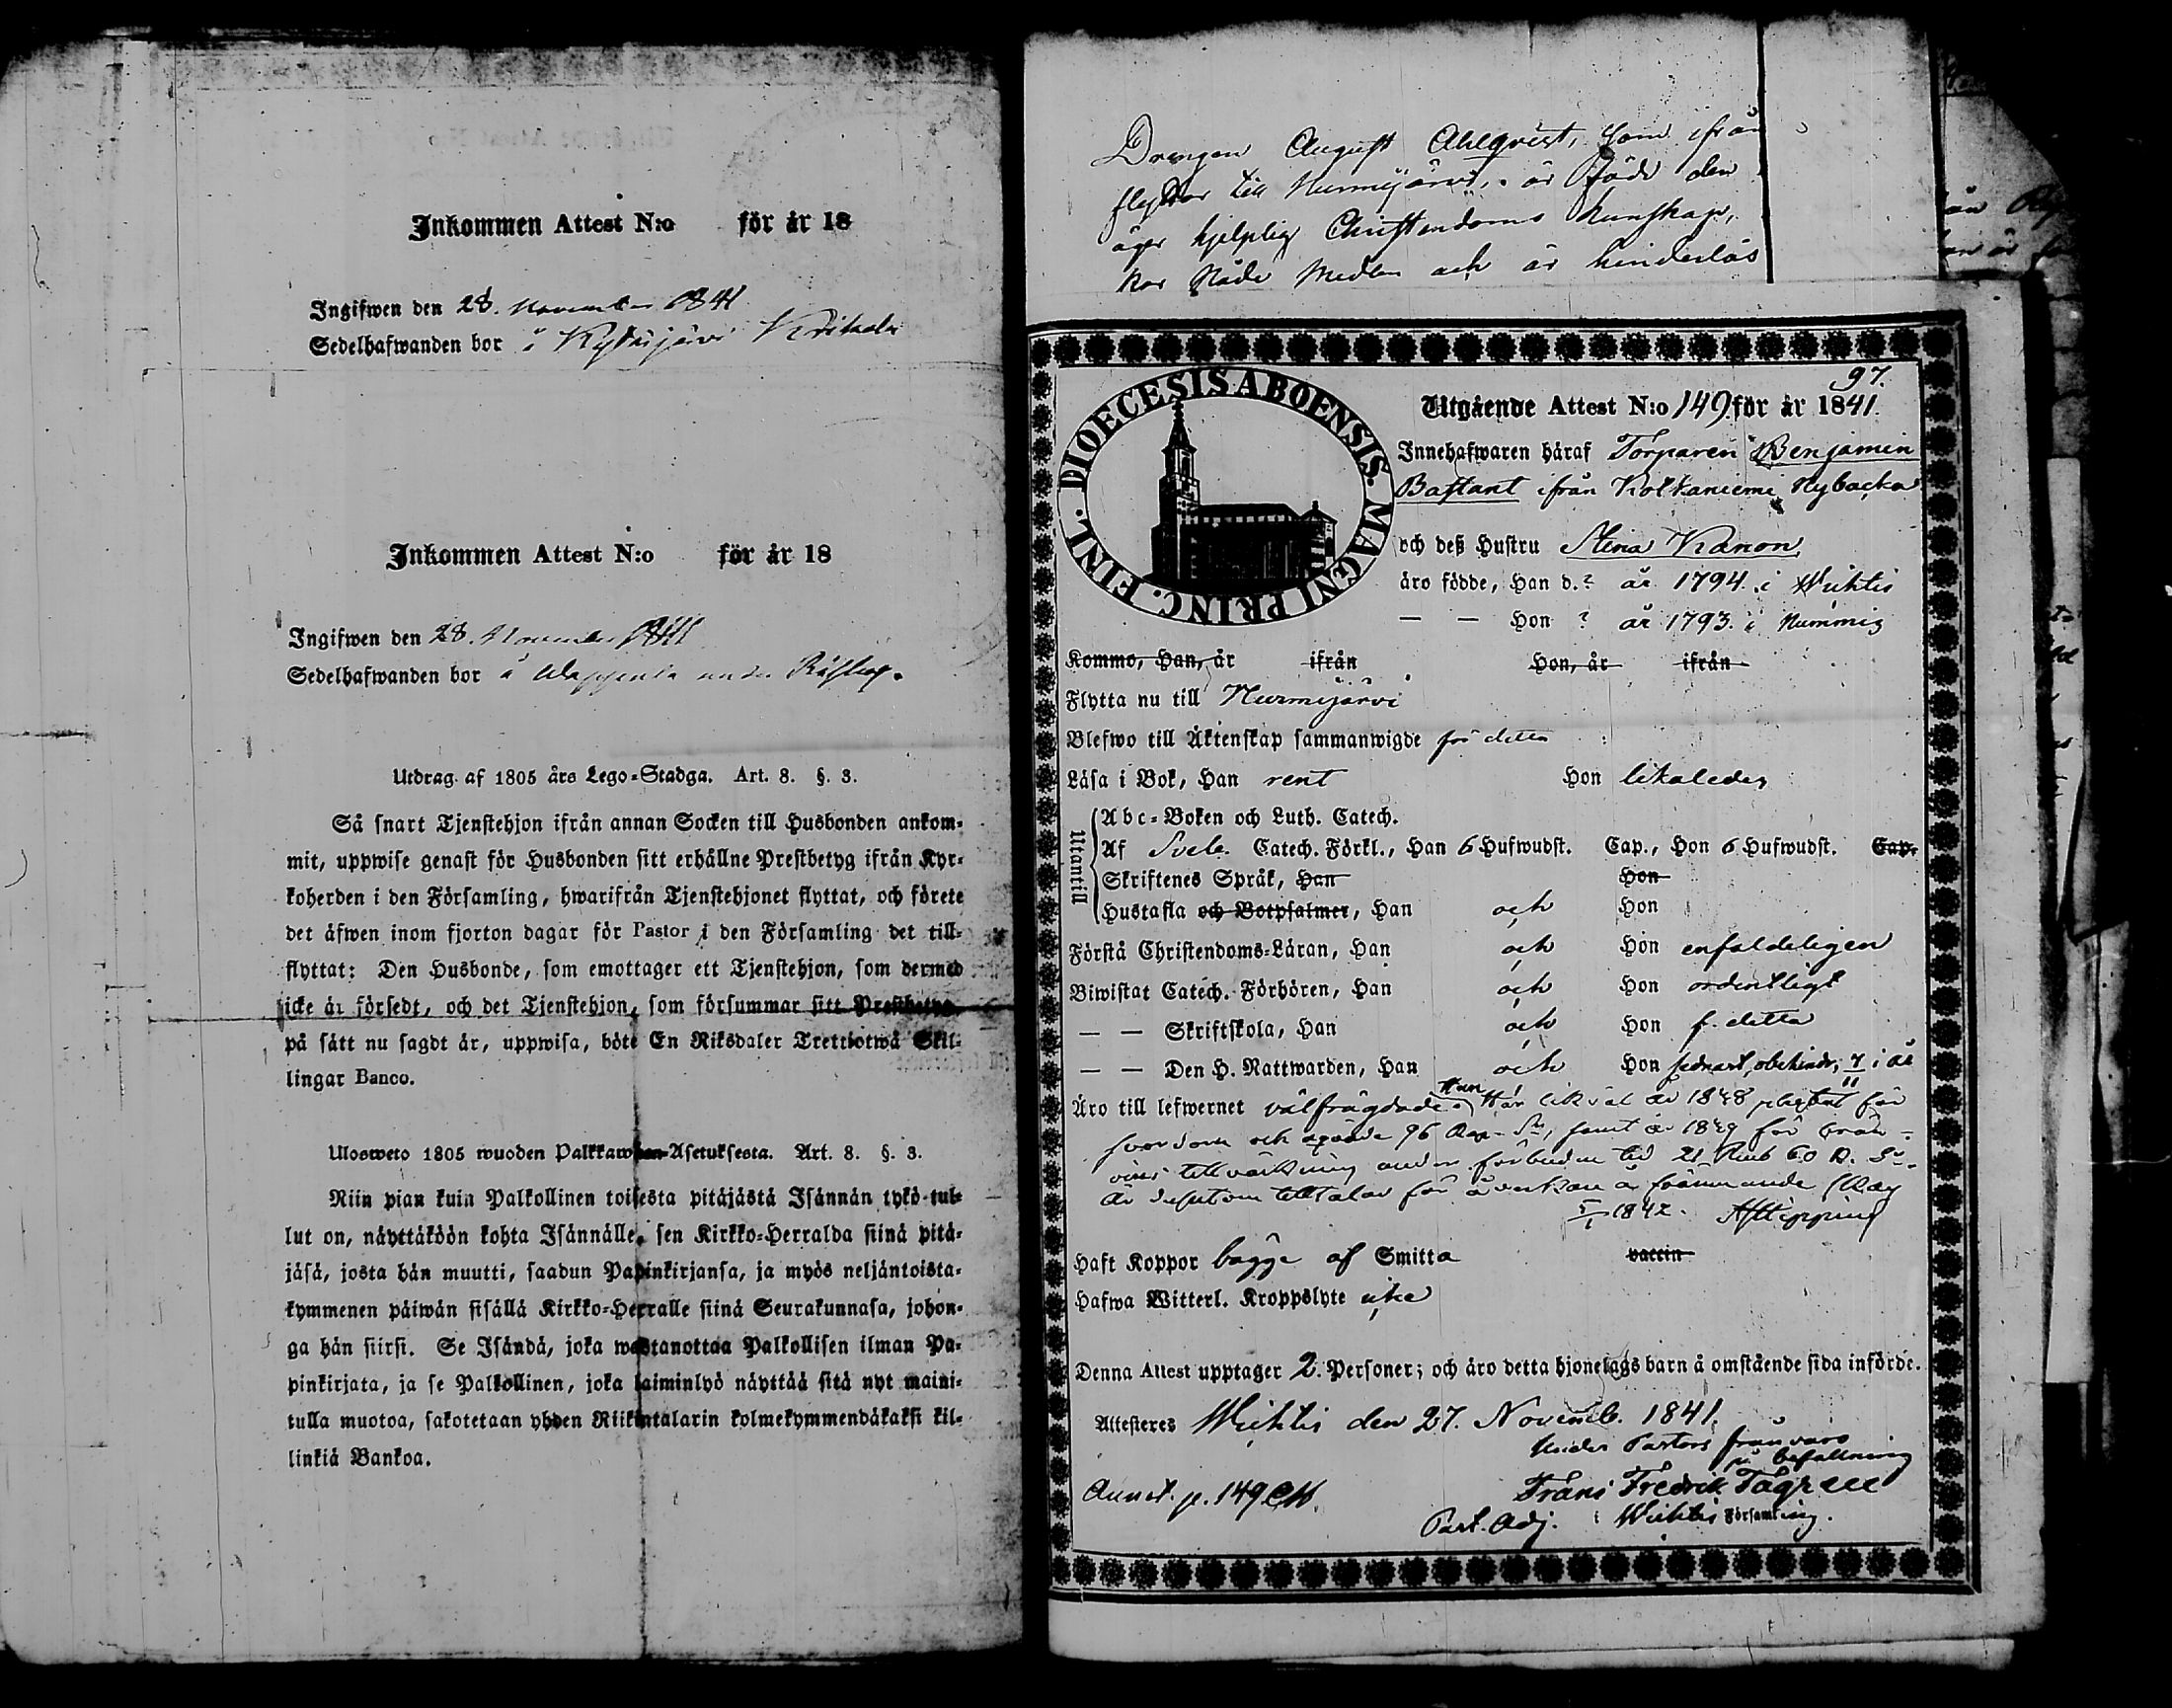 Inkommen Attest N:o för år 18
Ingifwen den 28. November 1841
Sedelhafwanden bor å
Inkommen Attest N:o för år 18
Ingifwen den 28. November 1841
Sedelhafwanden bor å under
Utdrag af 1805 års Lego-Stadga. Art. 8. §. 3.
Så snart Tjenstehjon ifrån annan Socken till Husbonden ankom-
mit, uppwise genast för Husbonden sitt erhållne Prestbetyg ifrån Kyr-
koherden i den Församling, hwarifrån Tjenstehjonet flyttat, och förete
det äfwen inom fjorton dagar för Pastor i den Församling det till-
flyttat: Den Husbonde, som emottager ett Tjenstehjon, som dermed
icke är försedt, och det Tjenstehjon, som försummar sitt Prestbetyg,
på sätt nu sagdt är, uppwisa, böte En Riksdaler Trettiotwå Skil-
lingar Banco.
Ulosweto 1805 wuoden Palkkawäen-Asetuksesta. Art. 8. §. 3.
Niin pian kuin Palkollinen toisesta pitäjästä Isännän tykö tul-
lut on, näyttäköön kohta Isännälle, sen Kirkko-Herralda siinä pitä-
jäsä, josta hän muutti, saadun Papinkirjansa, ja myös neljäntoista-
kymmenen päiwän sisällä Kirkko-Herralle siinä Seurakunnasa, johon-
ga hän siirsi. Se Isändä, joka wastanottaa Palkollisen ilman Pa-
pinkirjata, ja se Palkollinen, joka laiminlyö näyttää sitä nyt maini-
tulla muotoa, sakotetaan yhden Riikintalarin kolmekymmendäkaksi kil-
linkiä Bankoa.
Drengen August Ahlqvist, som ifrån
flyttar till Nurmijärvi, är född den
äger hjelplig Christendoms kunskap,
har Nåde Medlen och är hinderlös
97.
DIOECESIS ABOENSIS. MAGNI PRINC. FINL.
Utgående Attest N:o 149 för år 1841.
Innehafwaren häraf Torparen Benjamin
Bastant ifrån Kolkaniemi Nybacka
och deß Hustru Stina Kanon
äro födde, Han d. ? år 1794 i Wichtis
— — Hon ? år 1793 i Nummis
Kommo, Han, år ifrån Hon, år ifrån
Flytta nu till Nurmijärvi
Blefwo till Äktenskap sammanwigde för detta
Läsa i Bok, Han rent Hon likaledes
Utantill
Abc-Boken och Luth. Catech.
Af Sveb. Catech. Förkl., Han 6 Hufwudst. Cap., Hon 6 Hufwudst. Cap.
Skriftenes Språk, Han Hon
Hustafla och Botpsalmer, Han och Hon
Förstå Christendoms-Läran, Han och Hon enfaldeligen
Biwistat Catech. Förhören, Han och Hon ordentligt
— — Skriftskola, Han och Hon f. detta
— — Den H. Nattwarden, Han och Hon sednast, obehindr, 7/11 i år
Äro till lefwernet välfrägdade. Han
1842.
Haft Koppor bägge af Smitta vaccin
Hafwa Witterl. Kroppslyte icke
Denna Attest upptager 2 Personer; och äro detta hjonelags barn å omstående sida införde.
Attesteres Wichtis den 27. Novemb. 1841.
Under Pastors frånvaro
på befallning
Frans Fredrik
Past. Adj. i Wichtis Församling.
Annot. p. 149